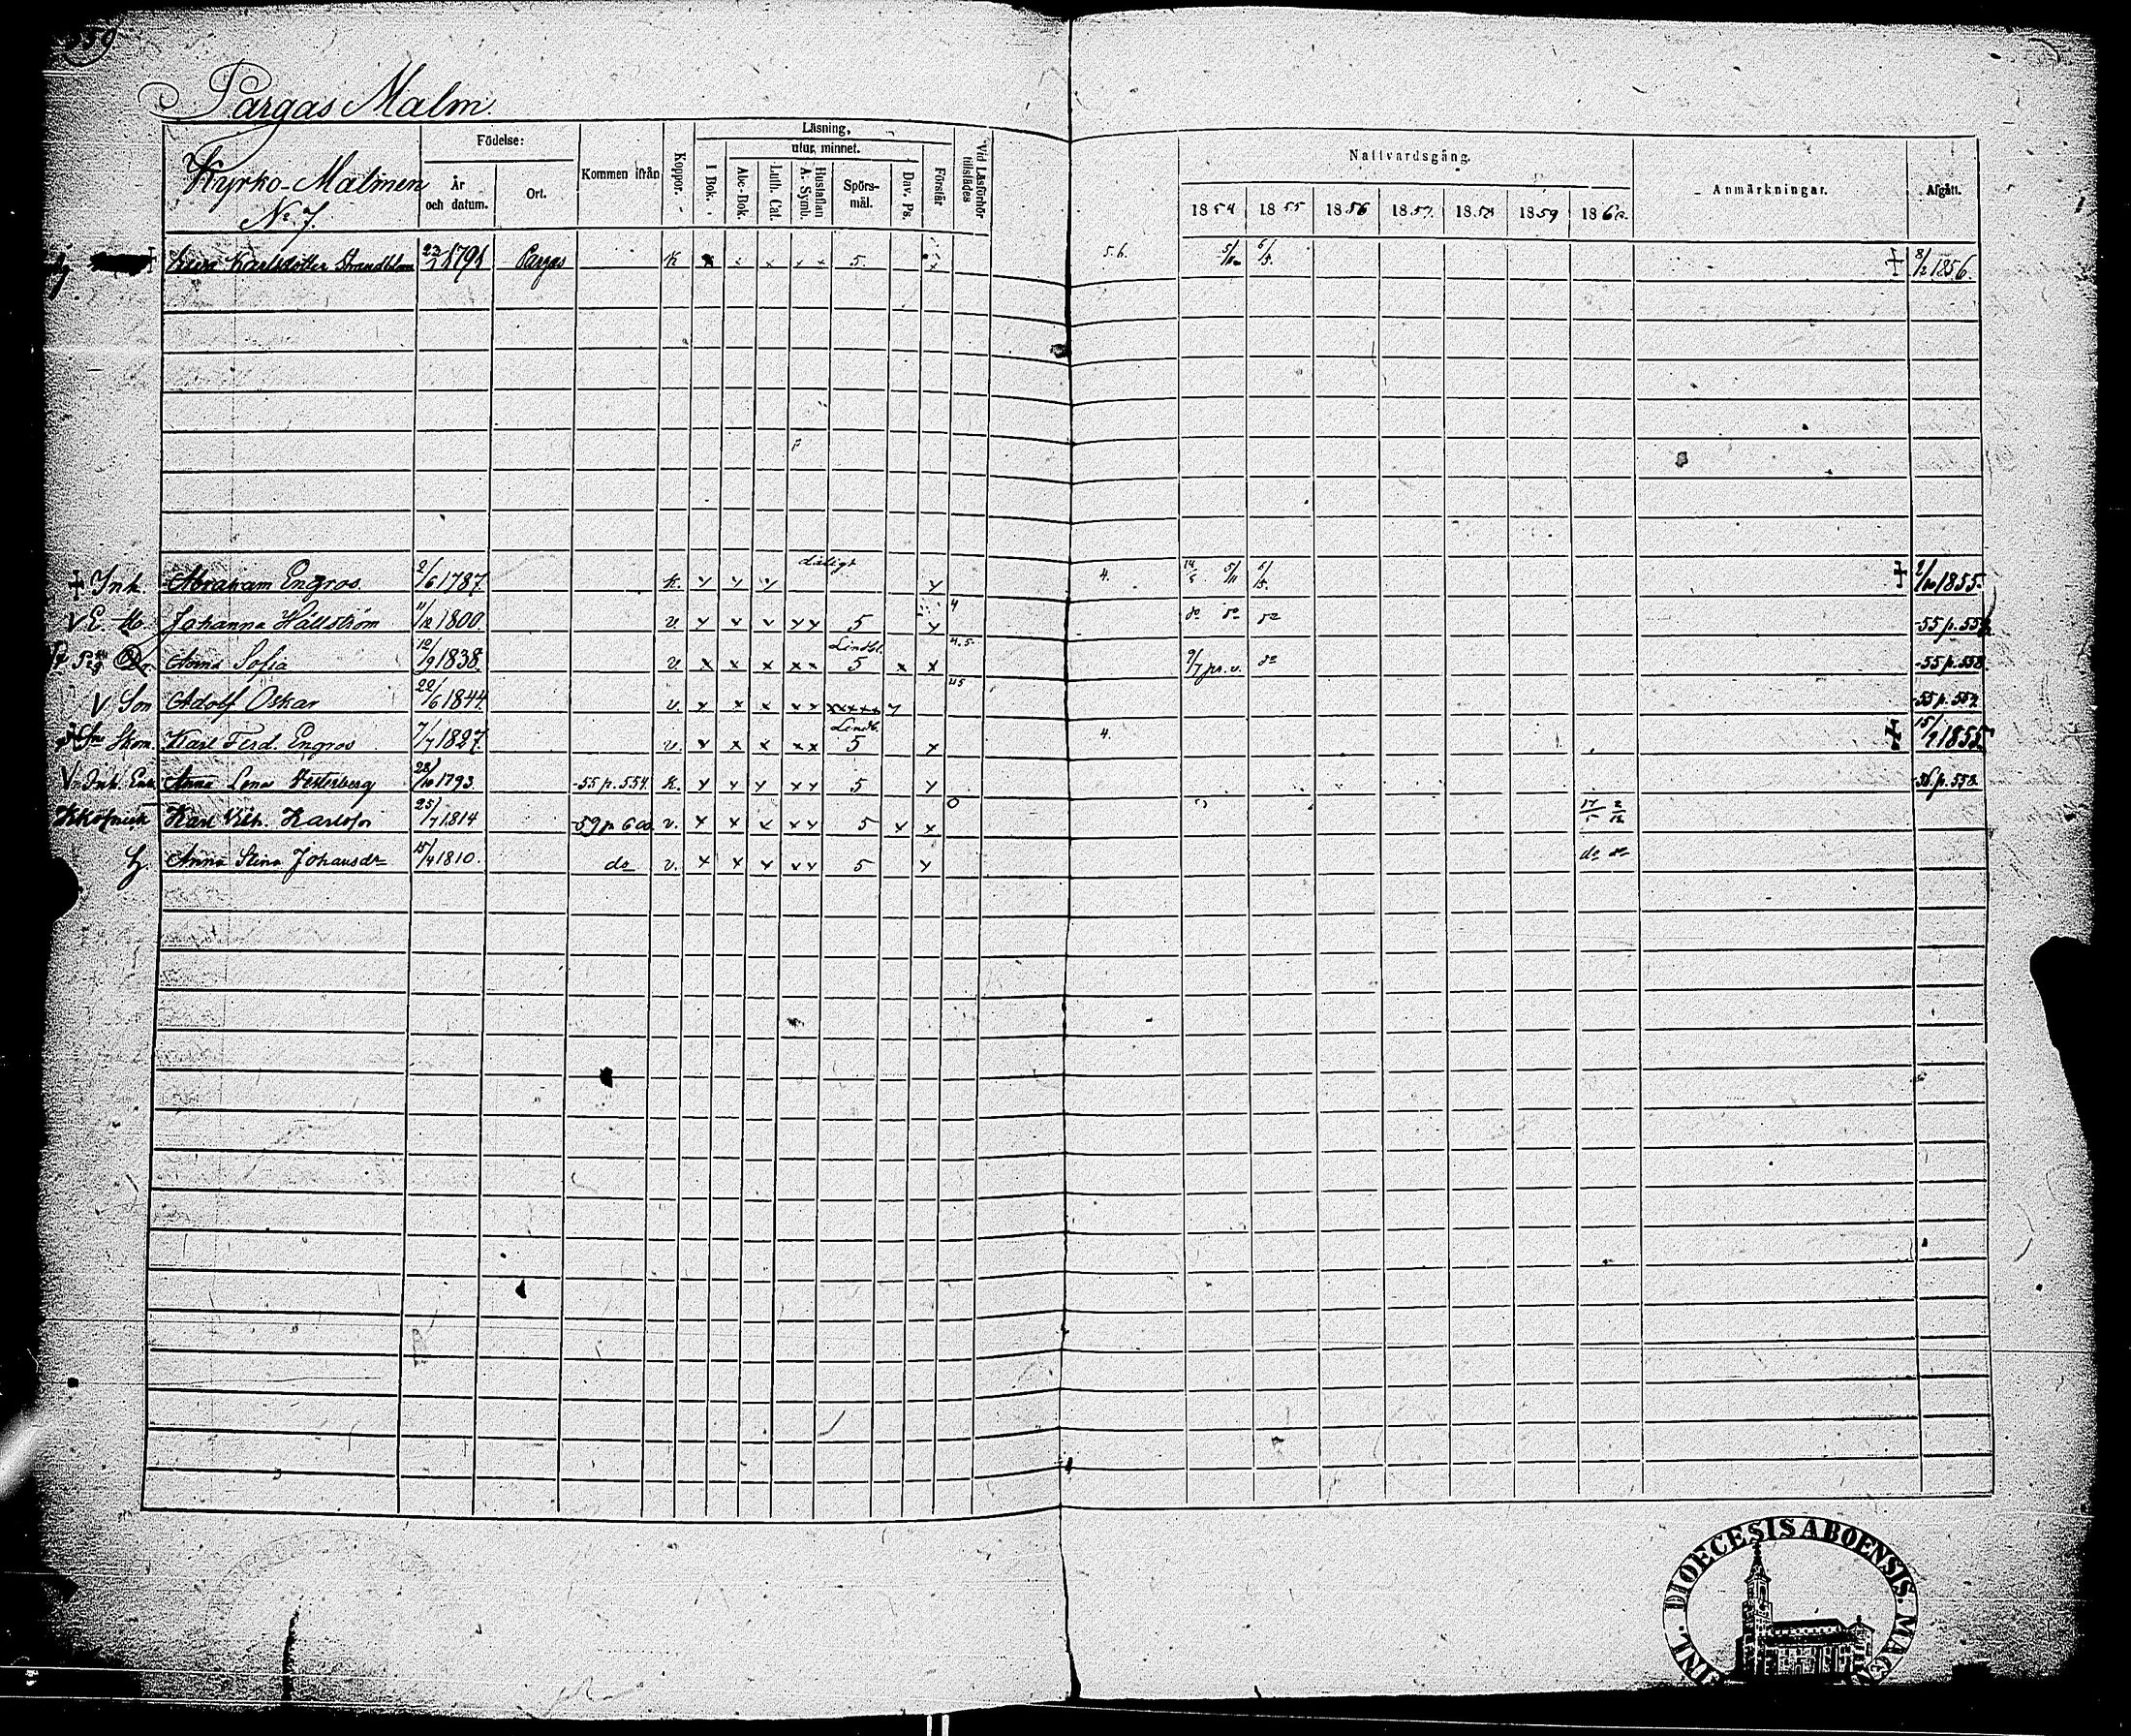 Pargas Malm.
Kyrko-Malmen
No 7.
Födelse:
År och datum.
Ort.
Kommen ifrån
Koppor.
Läsning,
I Bok.
utur minnet.
Abc-Bok.
Luth. Cat.
Hustaflan A. Symb.
Spörsmål.
Dav. Ps.
Förstår
Vid Läsförhör tillstädes
Nattvardsgång.
1854 1855 1856 1857. 1858 1859 1860.
Anmärkningar.
Afgått.
Karlsdotter Strandblom 23/1 1791 Pargas K x x x x x 5. x 5.6. 5/11 6/5. † 8/2 1856.
dåligt
† Inh. Abraham Engros. 2/6 1787 k. x x x x 4. 5/11 † 1855.
V E. Johanna Hällström 11/12 1800. v. x x x x x 5 x 4 do do do -55 p. 55
Anna Sofia 12/9 1838. v. x x x x x Lindbl. 5 x x 4.5. 9/7 pr. v. do -55 p. 558.
V Son Adolf Oskar 22/6 1844. v. x x x x x xxxxx x 45 -55 p. 55
Skom. Karl Ferd. Engros 7/7 1827. v. x x x x x Lindb. 5 x 4. † 15/7 1855
V. Inh. Enk. Anna Lena 28/10 1793. -55 p. 554. k. x x x x x 5 x p. 558
Karl Vilh. Karlsson 25/7 1814 -59 p 600. v. x x x x x 5 x x 0 17/5 2/12
H. Anna Stina Johansdr 15/4 1810. do v. x x x x x 5 x do do
DIOECESIS ABOENSIS. MAG